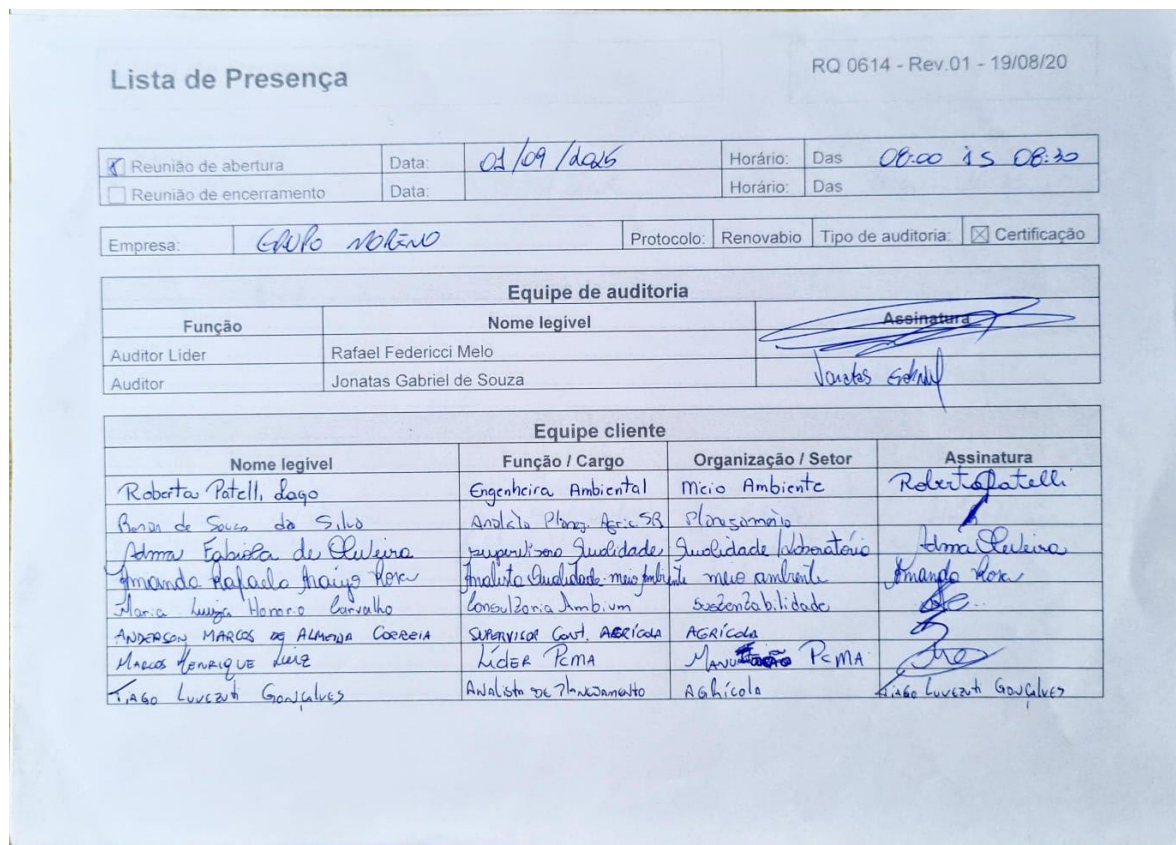 Lista de Presença
RQ 0614 - Rev.01 - 19/08/20
Reunião de abertura Data: 01/09/2025 Horário: Das 08:00 às 08:30
Reunião de encerramento Data: Horário: Das
Empresa: GRUPO MORENO Protocolo: Renovabio Tipo de auditoria: Certificação
Equipe de auditoria
Função Nome legível Assinatura
Auditor Lider Rafael Federicci Melo
Auditor Jonatas Gabriel de Souza Jonatas Gabriel
Equipe cliente
Nome legível Função / Cargo Organização / Setor Assinatura
Roberta Patelli Lago Engenheira Ambiental Meio Ambiente Roberta Patelli
de Souza da Silva Planej. Agric. Planejamento
Adma Fabiola de Oliveira Supervisora Qualidade Qualidade / Laboratório Adma Oliveira
Amanda Rafaela Araújo Rosa Analista Qualidade - meio ambiente meio ambiente Amanda Rosa
Maria Luiza Honorio Carvalho Consultoria Ambium Sustentabilidade
ANDERSON MARCOS DE ALMEIDA CORREIA SUPERVISOR CONT. AGRÍCOLA AGRÍCOLA
MARCOS HENRIQUE LUIZ LÍDER PCMA PCMA
TIAGO LUVEZUTI GONÇALVES ANALISTA DE PLANEJAMENTO AGRÍCOLA TIAGO LUVEZUTI GONÇALVES